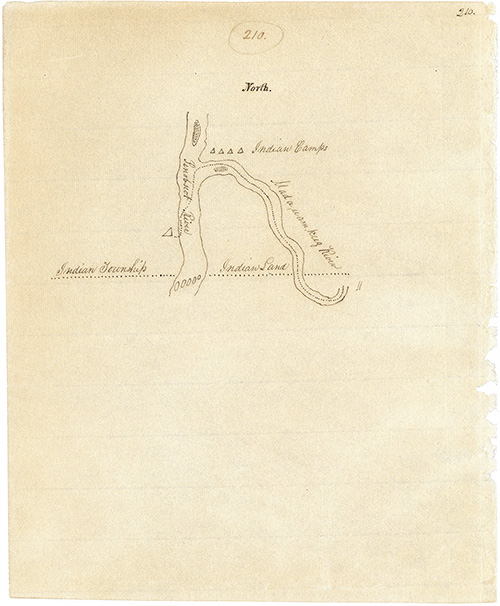 210.
210.
North.
Indian Camps
Penobscot River
Madawamkeg River
Indian Township
Indian Land